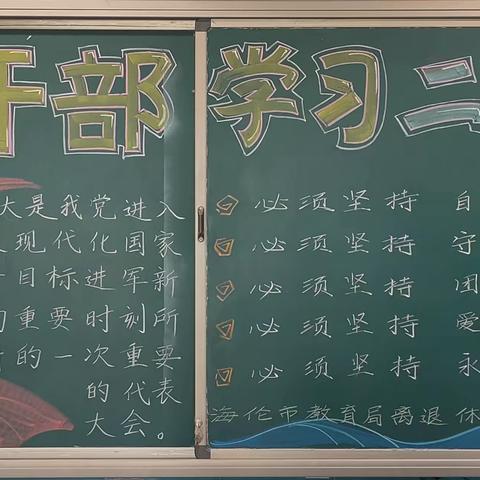 干部 学习二
大是我党进入
现代化国家
目标进军新
重要时刻所
的一次重要
的代表
大会。
必须坚持 自
必须坚持 守
必须坚持 团
必须坚持 爱
必须坚持 永
海伦市教育局离退休